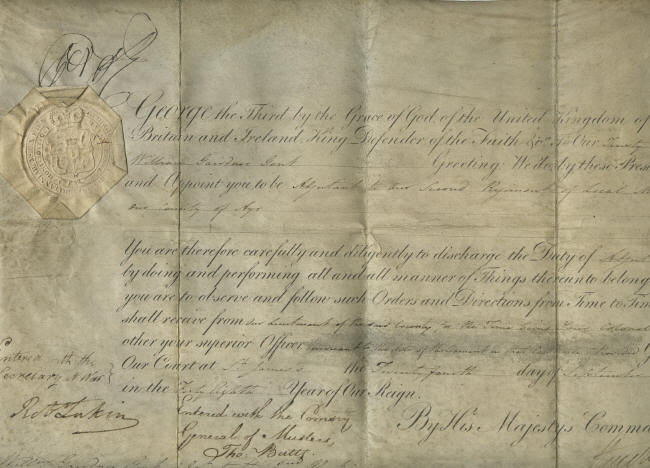 George the Third by the Grace of God, of the United Kingdom of
Britain and Ireland King, Defender of the Faith &c. To Our Trusty
William Gardner Gent Greeting We do by these Prese
and Appoint you to be Adjutant to our Second Regiment of Local M
our County of Ayr
You are therefore carefully and diligently to discharge the Duty of Adjut
by doing and performing all and all manner of Things thereunto belong
you are to observe and follow such Orders and Directions from Time to Tim
shall receive from our Lieutenant of the said County, Colonel
other your superior Officer pursuant to
Our Court at St James's the Twenty fourth day of September
in the Forty Eighth Year of Our Reign.
By His Majesty's Comma
Entered with the
Secretary at War
Entered with the Commry
General of Musters,
Tho. Butts